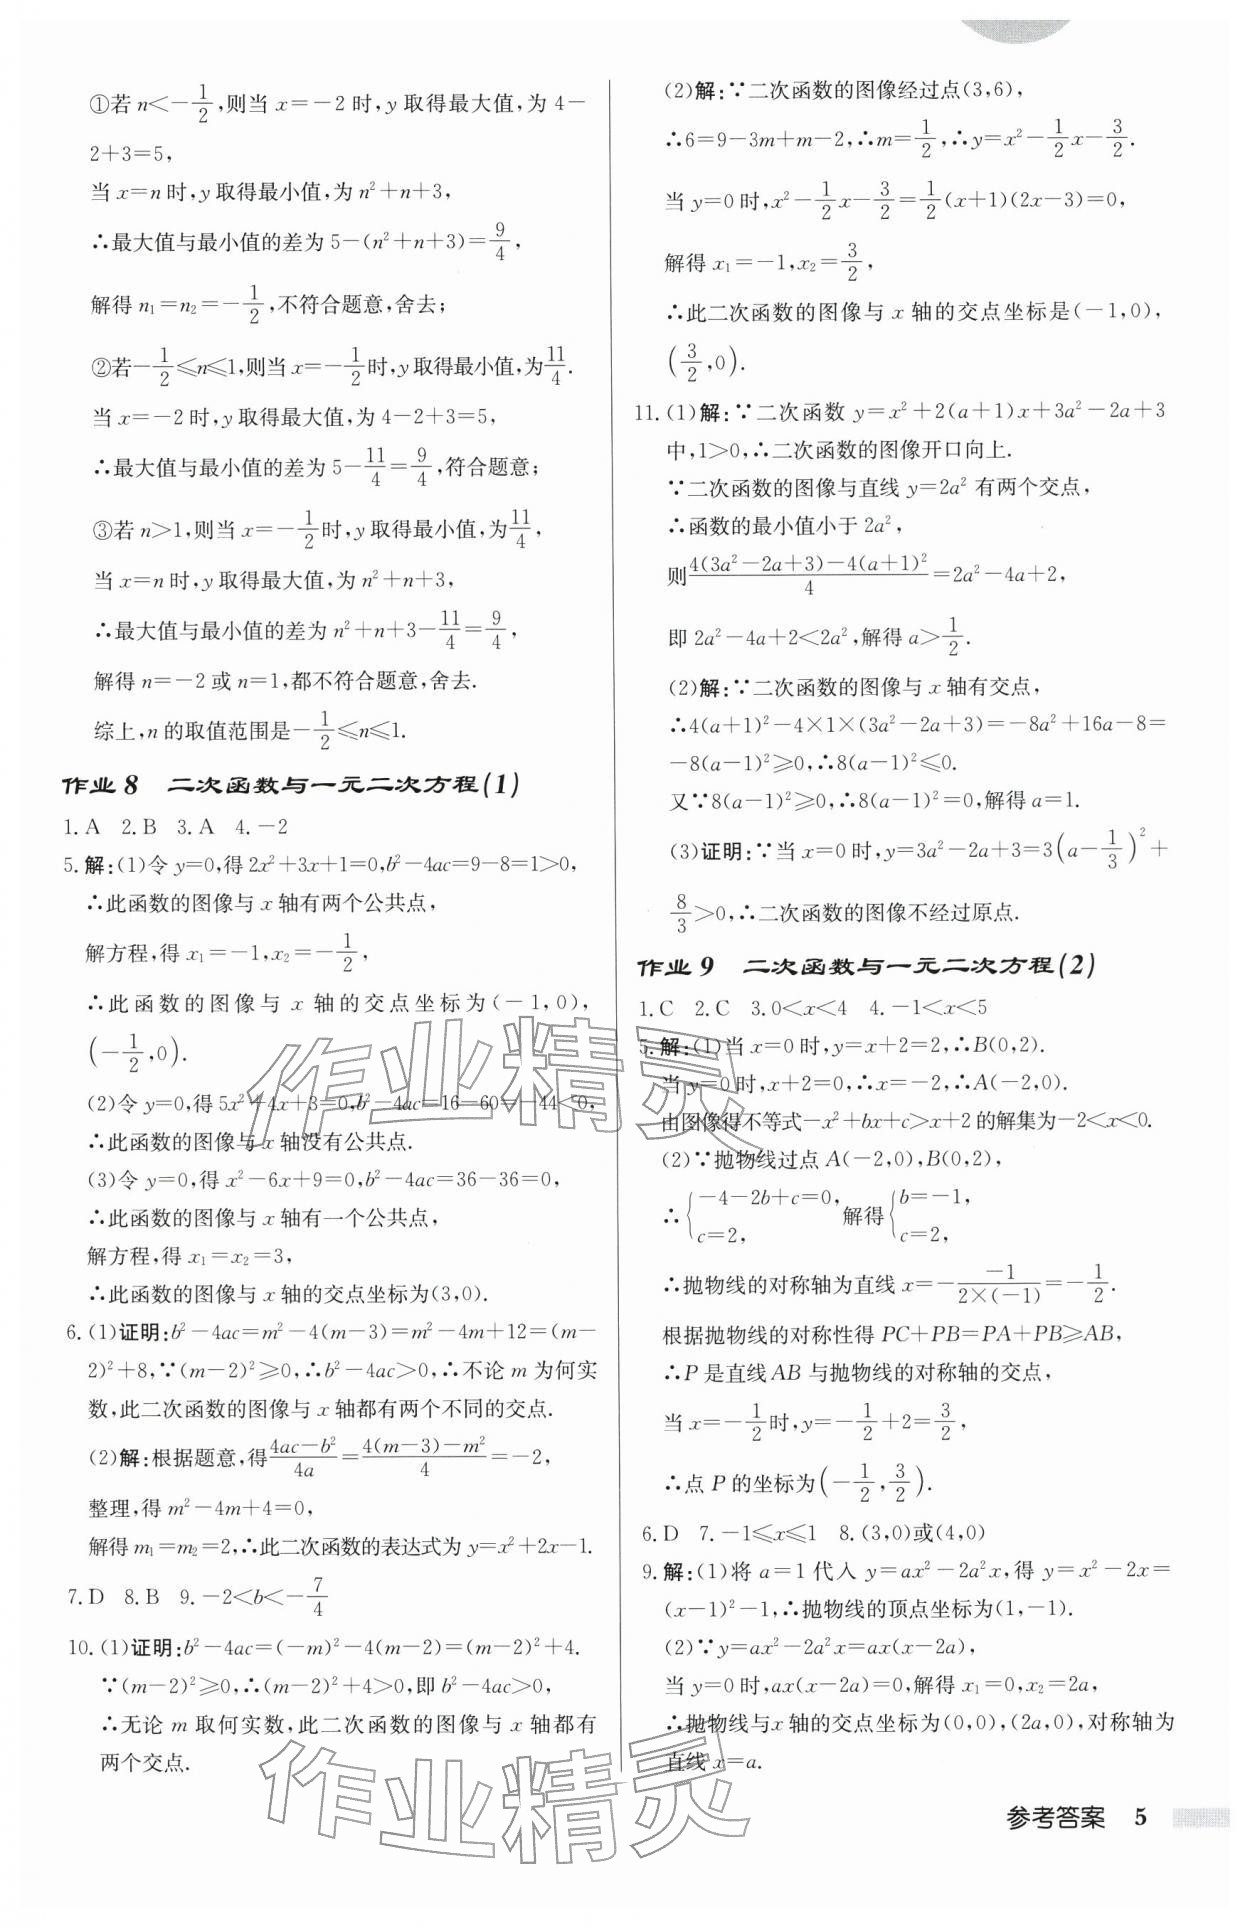 ①若 n<-1/2,则当 x=-2 时,y 取得最大值,为 4-
2+3=5,
当 x=n 时,y 取得最小值,为 n²+n+3,
∴最大值与最小值的差为 5-(n²+n+3)=9/4,
解得 n₁=n₂=-1/2,不符合题意,舍去;
②若-1/2≤n≤1,则当 x=-1/2时,y 取得最小值,为11/4.
当 x=-2 时,y 取得最大值,为 4-2+3=5,
∴最大值与最小值的差为 5-11/4=9/4,符合题意;
③若 n>1,则当 x=-1/2时,y 取得最小值,为11/4,
当 x=n 时,y 取得最大值,为 n²+n+3,
∴最大值与最小值的差为 n²+n+3-11/4=9/4,
解得 n=-2 或 n=1,都不符合题意,舍去.
综上,n 的取值范围是-1/2≤n≤1.
作业 8 二次函数与一元二次方程(1)
1. A 2. B 3. A 4. -2
5. 解:(1)令 y=0,得 2x²+3x+1=0,b²-4ac=9-8=1>0,
∴此函数的图像与 x 轴有两个公共点,
解方程,得 x₁=-1,x₂=-1/2,
∴此函数的图像与 x 轴的交点坐标为(-1,0),
(-1/2,0).
(2)令 y=0,得 5x²+4x+3=0,b²-4ac=16-60=-44<0,
∴此函数的图像与 x 轴没有公共点.
(3)令 y=0,得 x²-6x+9=0,b²-4ac=36-36=0,
∴此函数的图像与 x 轴有一个公共点,
解方程,得 x₁=x₂=3,
∴此函数的图像与 x 轴的交点坐标为(3,0).
6. (1)证明:b²-4ac=m²-4(m-3)=m²-4m+12=(m-
2)²+8,∵(m-2)²≥0,∴b²-4ac>0,∴不论 m 为何实
数,此二次函数的图像与 x 轴都有两个不同的交点.
(2)解:根据题意,得(4ac-b²)/4a=(4(m-3)-m²)/4=-2,
整理,得 m²-4m+4=0,
解得 m₁=m₂=2,∴此二次函数的表达式为 y=x²+2x-1.
7. D 8. B 9. -2<b<-7/4
10. (1)证明:b²-4ac=(-m)²-4(m-2)=(m-2)²+4.
∵(m-2)²≥0,∴(m-2)²+4>0,即 b²-4ac>0,
∴无论 m 取何实数,此二次函数的图像与 x 轴都有
两个交点.
(2)解:∵二次函数的图像经过点(3,6),
∴6=9-3m+m-2,∴m=1/2,∴y=x²-1/2x-3/2.
当 y=0 时,x²-1/2x-3/2=1/2(x+1)(2x-3)=0,
解得 x₁=-1,x₂=3/2,
∴此二次函数的图像与 x 轴的交点坐标是(-1,0),
(3/2,0).
11. (1)解:∵二次函数 y=x²+2(a+1)x+3a²-2a+3
中,1>0,∴二次函数的图像开口向上.
∵二次函数的图像与直线 y=2a² 有两个交点,
∴函数的最小值小于 2a²,
则(4(3a²-2a+3)-4(a+1)²)/4=2a²-4a+2,
即 2a²-4a+2<2a²,解得 a>1/2.
(2)解:∵二次函数的图像与 x 轴有交点,
∴4(a+1)²-4×1×(3a²-2a+3)=-8a²+16a-8=
-8(a-1)²≥0,∴8(a-1)²≤0.
又∵8(a-1)²≥0,∴8(a-1)²=0,解得 a=1.
(3)证明:∵当 x=0 时,y=3a²-2a+3=3(a-1/3)²+
8/3>0,∴二次函数的图像不经过原点.
作业 9 二次函数与一元二次方程(2)
1. C 2. C 3. 0<x<4 4. -1<x<5
5. 解:(1)当 x=0 时,y=x+2=2,∴B(0,2).
当 y=0 时,x+2=0,∴x=-2,∴A(-2,0).
由图像得不等式-x²+bx+c>x+2 的解集为-2<x<0.
(2)∵抛物线过点 A(-2,0),B(0,2),
∴{-4-2b+c=0, c=2, 解得{b=-1, c=2,
∴抛物线的对称轴为直线 x=-(-1)/(2×(-1))=-1/2.
根据抛物线的对称性得 PC+PB=PA+PB≥AB,
∴P 是直线 AB 与抛物线的对称轴的交点,
当 x=-1/2时,y=-1/2+2=3/2,
∴点 P 的坐标为(-1/2,3/2).
6. D 7. -1≤x≤1 8. (3,0)或(4,0)
9. 解:(1)将 a=1 代入 y=ax²-2a²x,得 y=x²-2x=
(x-1)²-1,∴抛物线的顶点坐标为(1,-1).
(2)∵y=ax²-2a²x=ax(x-2a),
当 y=0 时,ax(x-2a)=0,解得 x₁=0,x₂=2a,
∴抛物线与x 轴的交点坐标为(0,0),(2a,0),对称轴为
直线 x=a.
参考答案 5
作业精灵
作业精灵